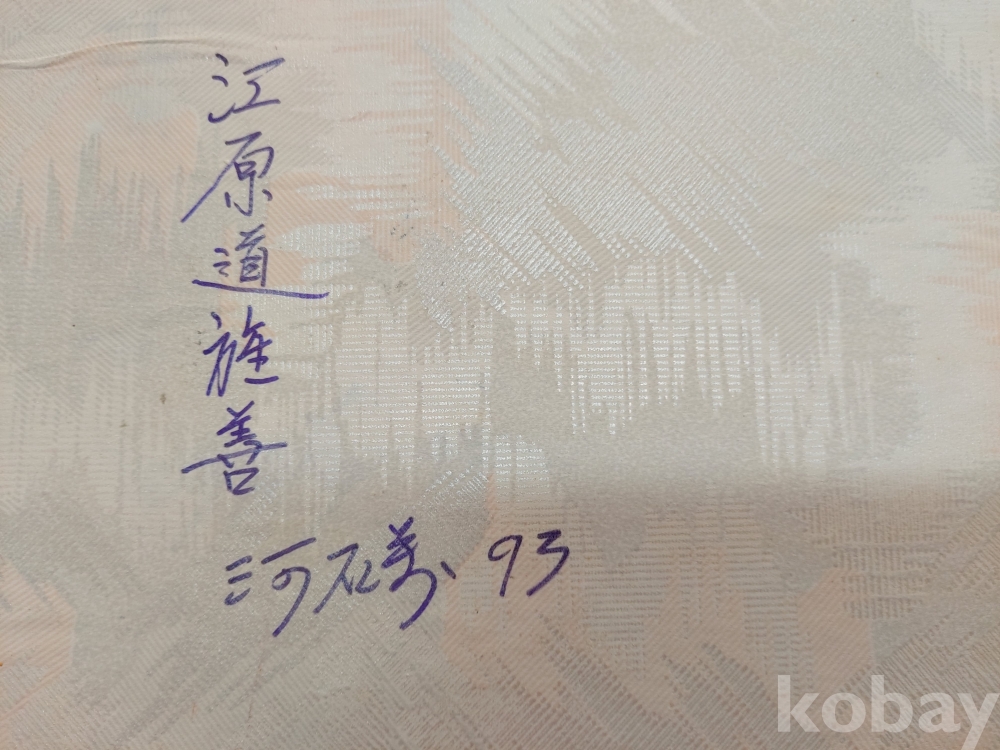 江原道旌善
河石 93
kobay